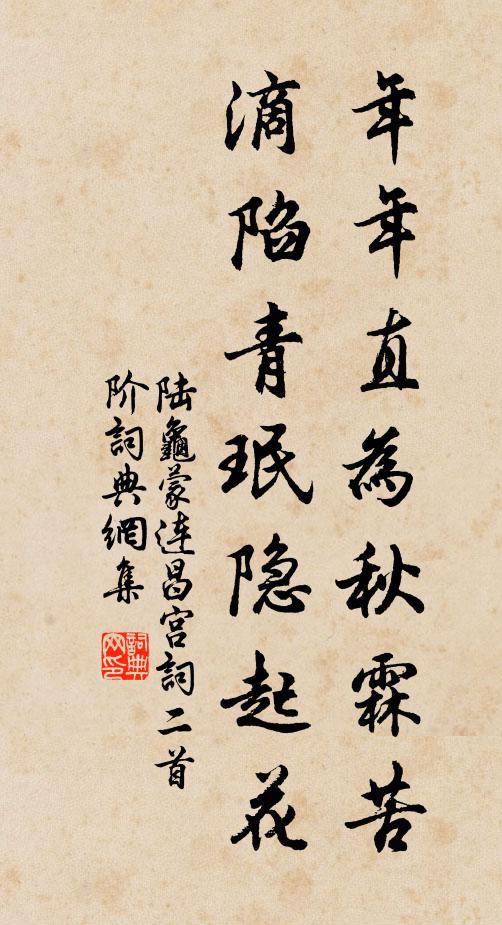 年年直為秋霖苦
滴陷青珉隐起花
陆龜蒙连昌宫詞二首
阶詞典網集
詞典网印